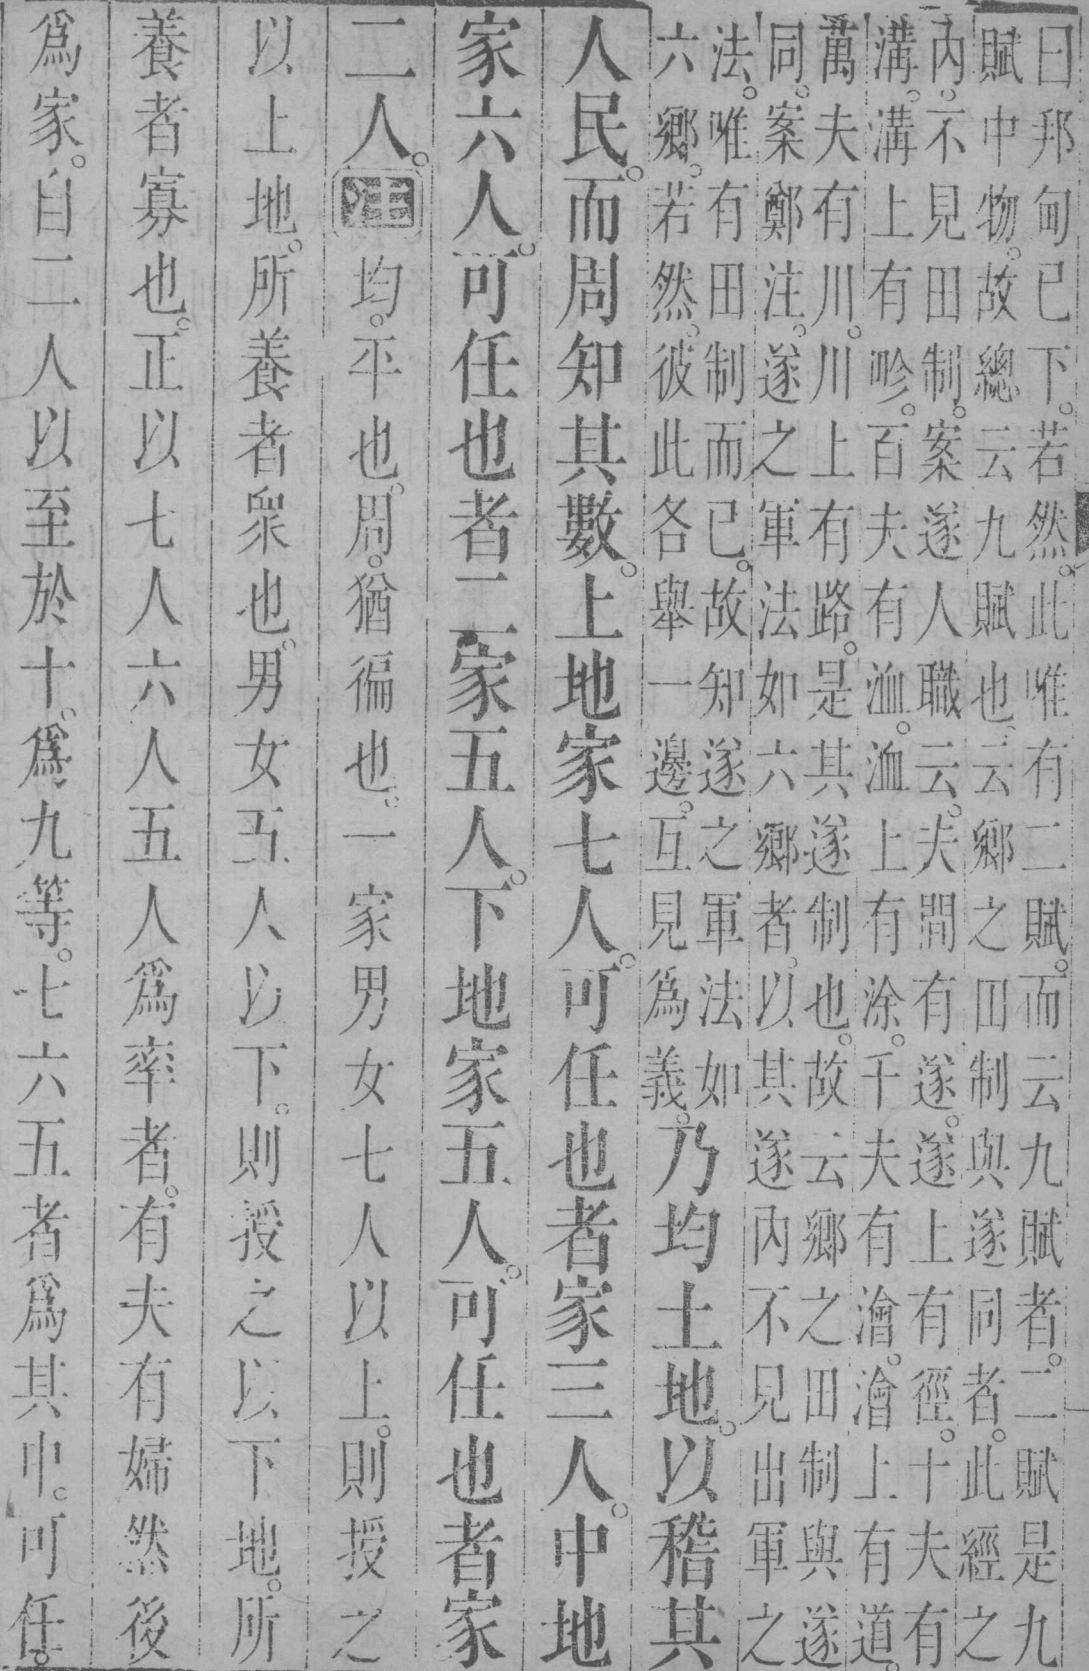 曰邦甸已下。若然。此唯有二賦。而云九賦者。二賦是九
賦中物。故總云九賦也。云鄉之田制與遂同者。此經之
內。不見田制。案遂人職云。夫間有遂。遂上有徑。十夫有
溝。溝上有畛。百夫有洫。洫上有涂。千夫有澮。澮上有道。
萬夫有川。川上有路。是其遂制也。故云鄉之田制與遂
同。案鄭注。遂之軍法如六鄉者。以其遂內不見出軍之
法。唯有田制而已。故知遂之軍法如
六鄉。若然。彼此各舉一邊。互見為義。乃均土地。以稽其
人民。而周知其數。上地家七人。可任也者家三人。中地
家六人。可任也者二家五人。下地家五人。可任也者家
二人。注均。平也。周。猶徧也。一家男女七人以上。則授之
以上地。所養者眾也。男女五人以下。則授之以下地。所
養者寡也。正以七人六人五人爲率者。有夫有婦然後
爲家。自二人以至於十。爲九等。七六五者爲其中。可任。